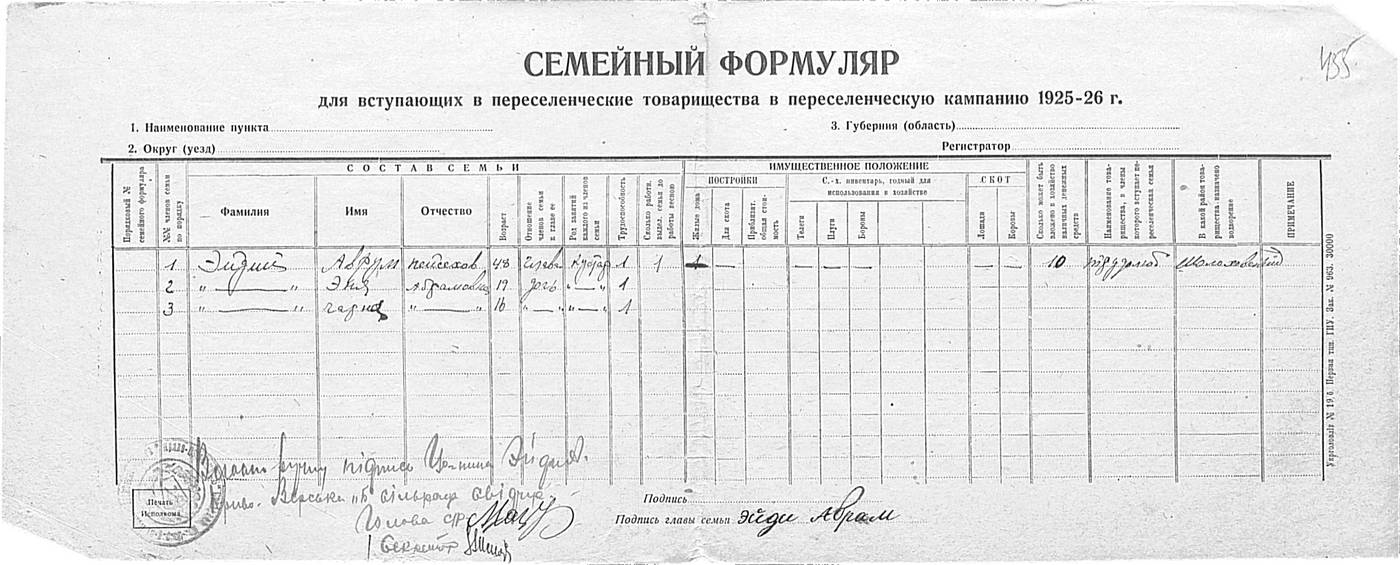 455
СЕМЕЙНЫЙ ФОРМУЛЯР
для вступающих в переселенческие товарищества в переселенческую кампанию 1925-26 г.
1. Наименование пункта
3. Губерния (область)
2. Округ (уезд)
Регистратор
Порядковый № семейного формуляра
№№ членов семьи по порядку
СОСТАВ СЕМЬИ
Фамилия
Имя
Отчество
Возраст
Отношение членов семьи к главе ее
Род занятий каждого из членов семьи
Трудоспособность
Сколько работн. выдел. семья до работы весною
ИМУЩЕСТВЕННОЕ ПОЛОЖЕНИЕ
ПОСТРОЙКИ
Жилые дома
Для скота
Приблизит. общая стоимость
С.-х. инвентарь, годный для использования в хозяйстве
Телеги
Плуги
Бороны
СКОТ
Лошади
Коровы
Сколько может быть вложено в хозяйство наличных денежных средств
Наименование товарищества, в члены которого вступает переселенческая семья
В какой район товарищества назначено водворение
ПРИМЕЧАНИЕ
1 Аврум 48 1 1 1 — — — — — — — 10
2 " — " Эня Абрамовна 19 дочь " — " 1
3 " — " " — " 16 " — " " — " 1
підпись
сільрада
Голова
Секретар
Печать Исполкома
Подпись
Подпись главы семьи Эйди Аврам
Укрголовліт № 19/б. Первая тип. ГПУ. Зак. № 963. 30000